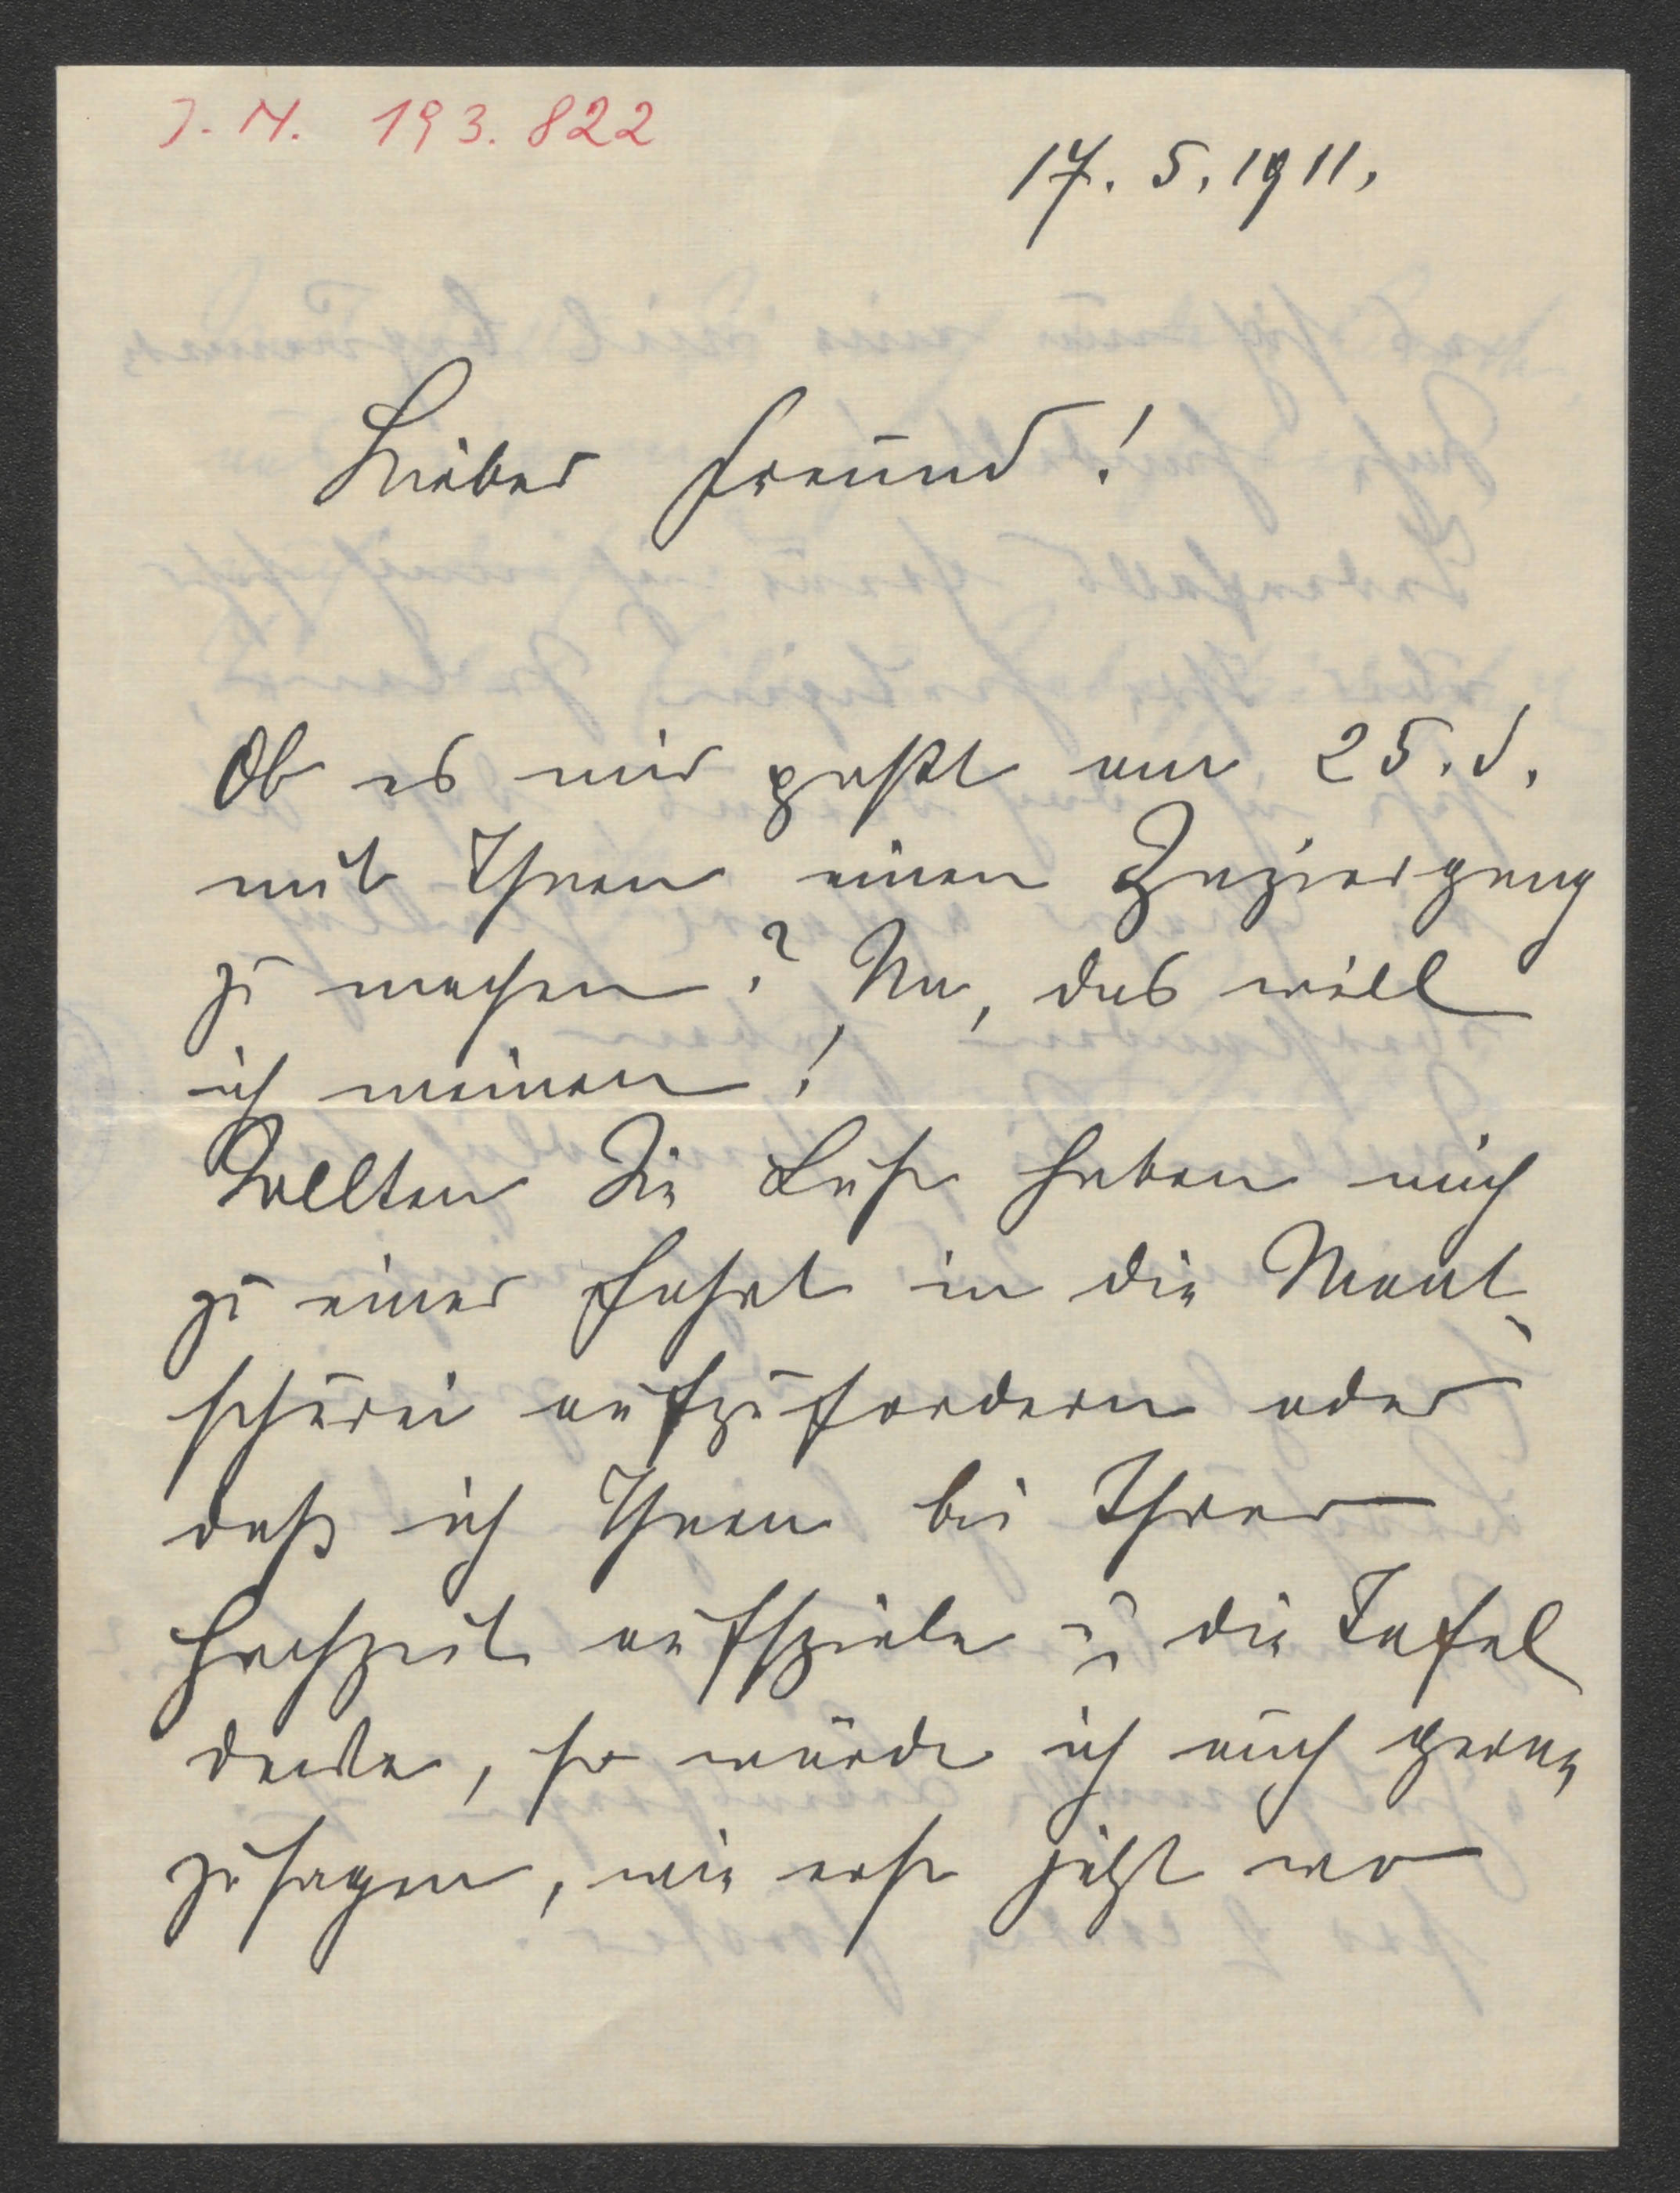 J. N. 193.822
17. 5. 1911.
Lieber Freund!
Ob es mir paßt am 25. d.
mit Ihnen einen
zu machen? Na, das will
ich meinen!
Wollten Sie Lust haben mich
zu einer Fahrt in die Mant-
schurei aufzufordern oder
daß ich Ihnen bei Ihrer
Hochzeit aufspiele u die Tafel
decke, so würde ich auch gerne
zusagen, wie erst jetzt wo